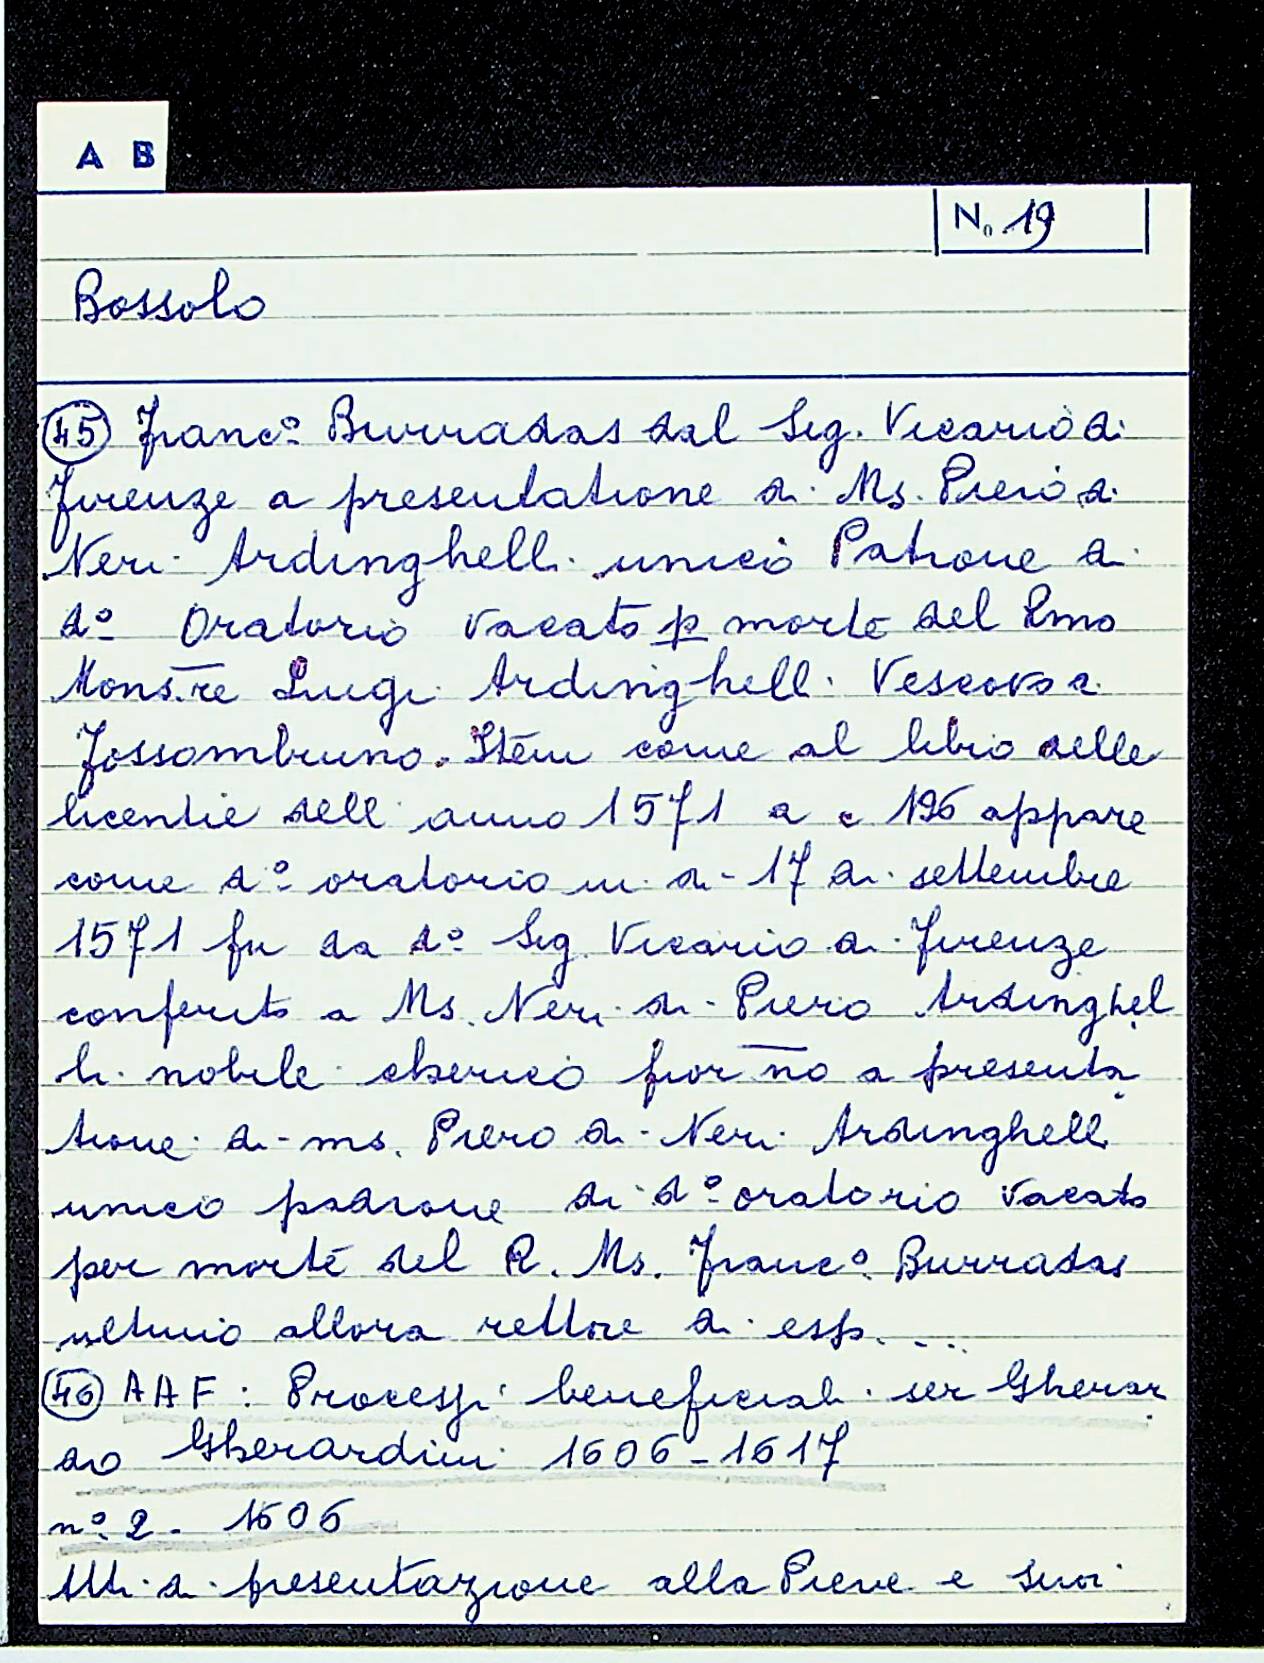 A B
No. 19
Bossolo
45 Franc.º Burradas dal Sig. Vicario di
Firenze a presentatione di Ms. Piero di
Neri Ardinghelli unico Patrone di
d.º Oratorio vacato p morte del Rmo
Mons.re Luigi Ardinghelli Vescovo a
Fossombruno. Item come al libro delle
licentie dell anno 1571 a c 196 appare
come d.º oratorio in di 17 di settembre
1571 fu da d.º Sig. Vicario di Firenze
conferito a Ms. Neri di Piero Ardinghel
li nobile cherico fior no a presenta
tione di ms. Piero di Neri Ardinghelli
unico padrone di d.º oratorio vacato
per morte del R. Ms. Franc.º Burradas
ultimo allora rettore di esso. ...
46 AAF: Processi beneficiali ser Gherar
do Gherardini 1606-1617
n.º 2 - 1606
Atti di presentazione alla Pieve e suoi